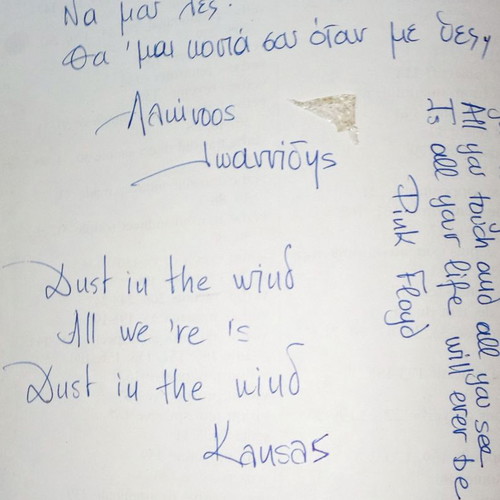 Να μου λες.
Θα 'μαι κοντά σου όταν με θες,
Αλκίνοος
Ιωαννίδης
Dust in the wind
All we 're is
Dust in the wind
Kansas
All you touch and all you see
Is all your life will ever be
Pink Floyd